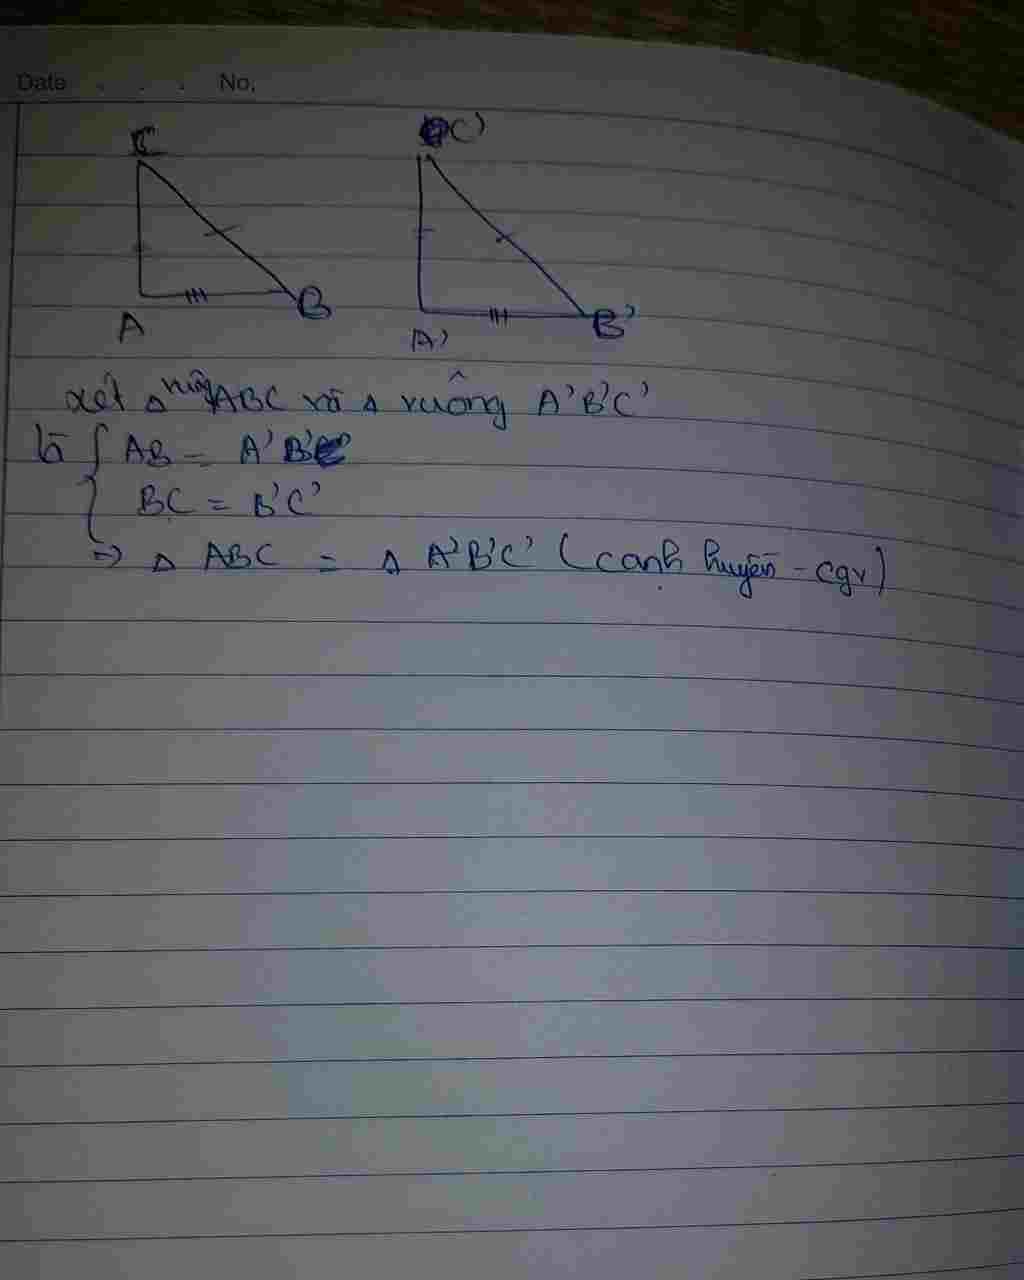 Date . . . No.
C C'
A B A' B'
xét Δ vuông ABC và Δ vuông A'B'C'
có { AB = A'B'
BC = B'C'
=> Δ ABC = Δ A'B'C' (cạnh huyền - cgv)